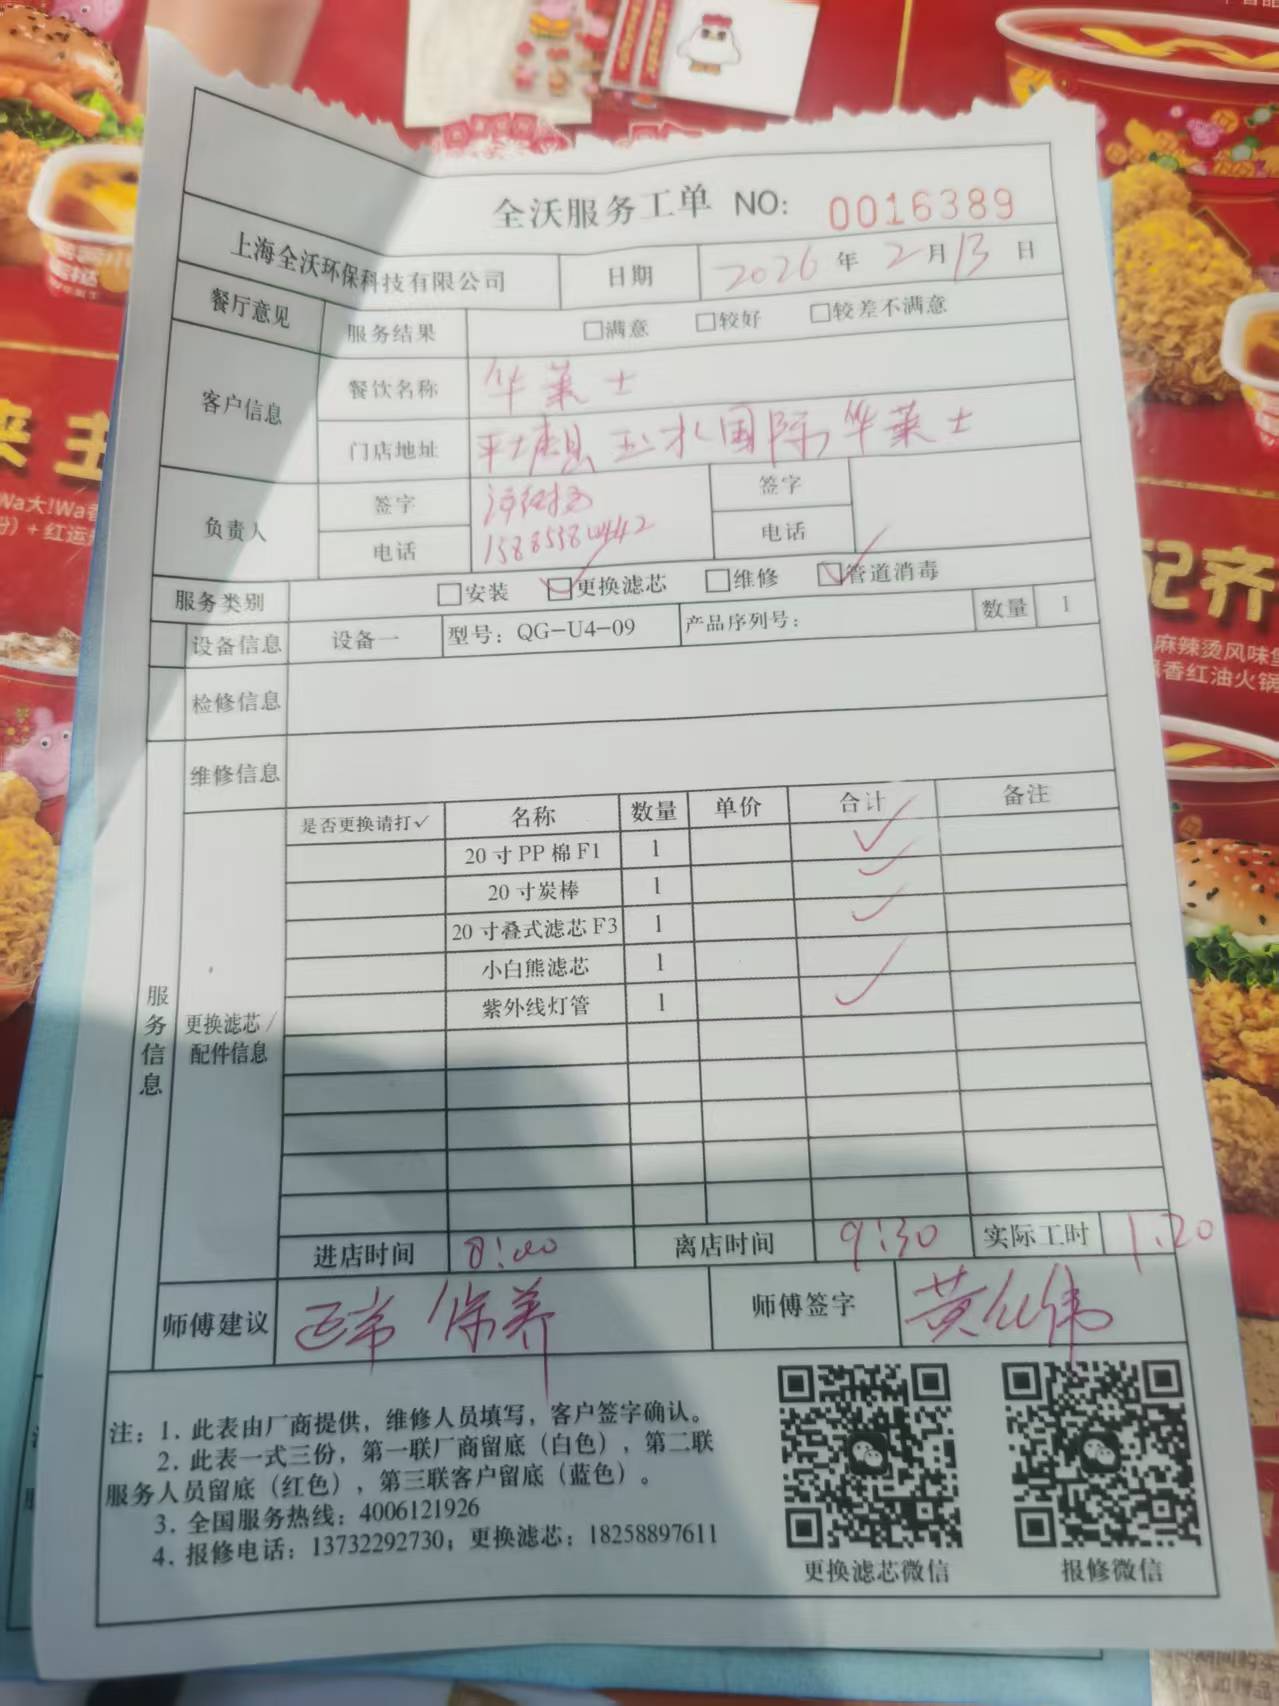 全沃服务工单 NO: 0016389
上海全沃环保科技有限公司 日期 2026年2月13日
餐厅意见 服务结果 □满意 □较好 □较差不满意
客户信息 餐饮名称 华莱士
门店地址 平塘县玉水国际华莱士
负责人 签字 签字
电话 电话
服务类别 □安装 ☑更换滤芯 □维修 ☑管道消毒
设备信息 设备一 型号: QG-U4-09 产品序列号: 数量 1
检修信息
维修信息
服务信息
更换滤芯/配件信息
是否更换请打✓ 名称 数量 单价 合计 备注
20寸PP棉F1 1 ✓
20寸炭棒 1 ✓
20寸叠式滤芯F3 1 ✓
小白熊滤芯 1
紫外线灯管 1 ✓
进店时间 8:00 离店时间 9:30 实际工时 1.20
师傅建议 正常 保养 师傅签字
注: 1. 此表由厂商提供, 维修人员填写, 客户签字确认。
2. 此表一式三份, 第一联厂商留底(白色), 第二联
服务人员留底(红色), 第三联客户留底(蓝色)。
3. 全国服务热线: 4006121926
4. 报修电话: 13732292730; 更换滤芯: 18258897611
更换滤芯微信 报修微信